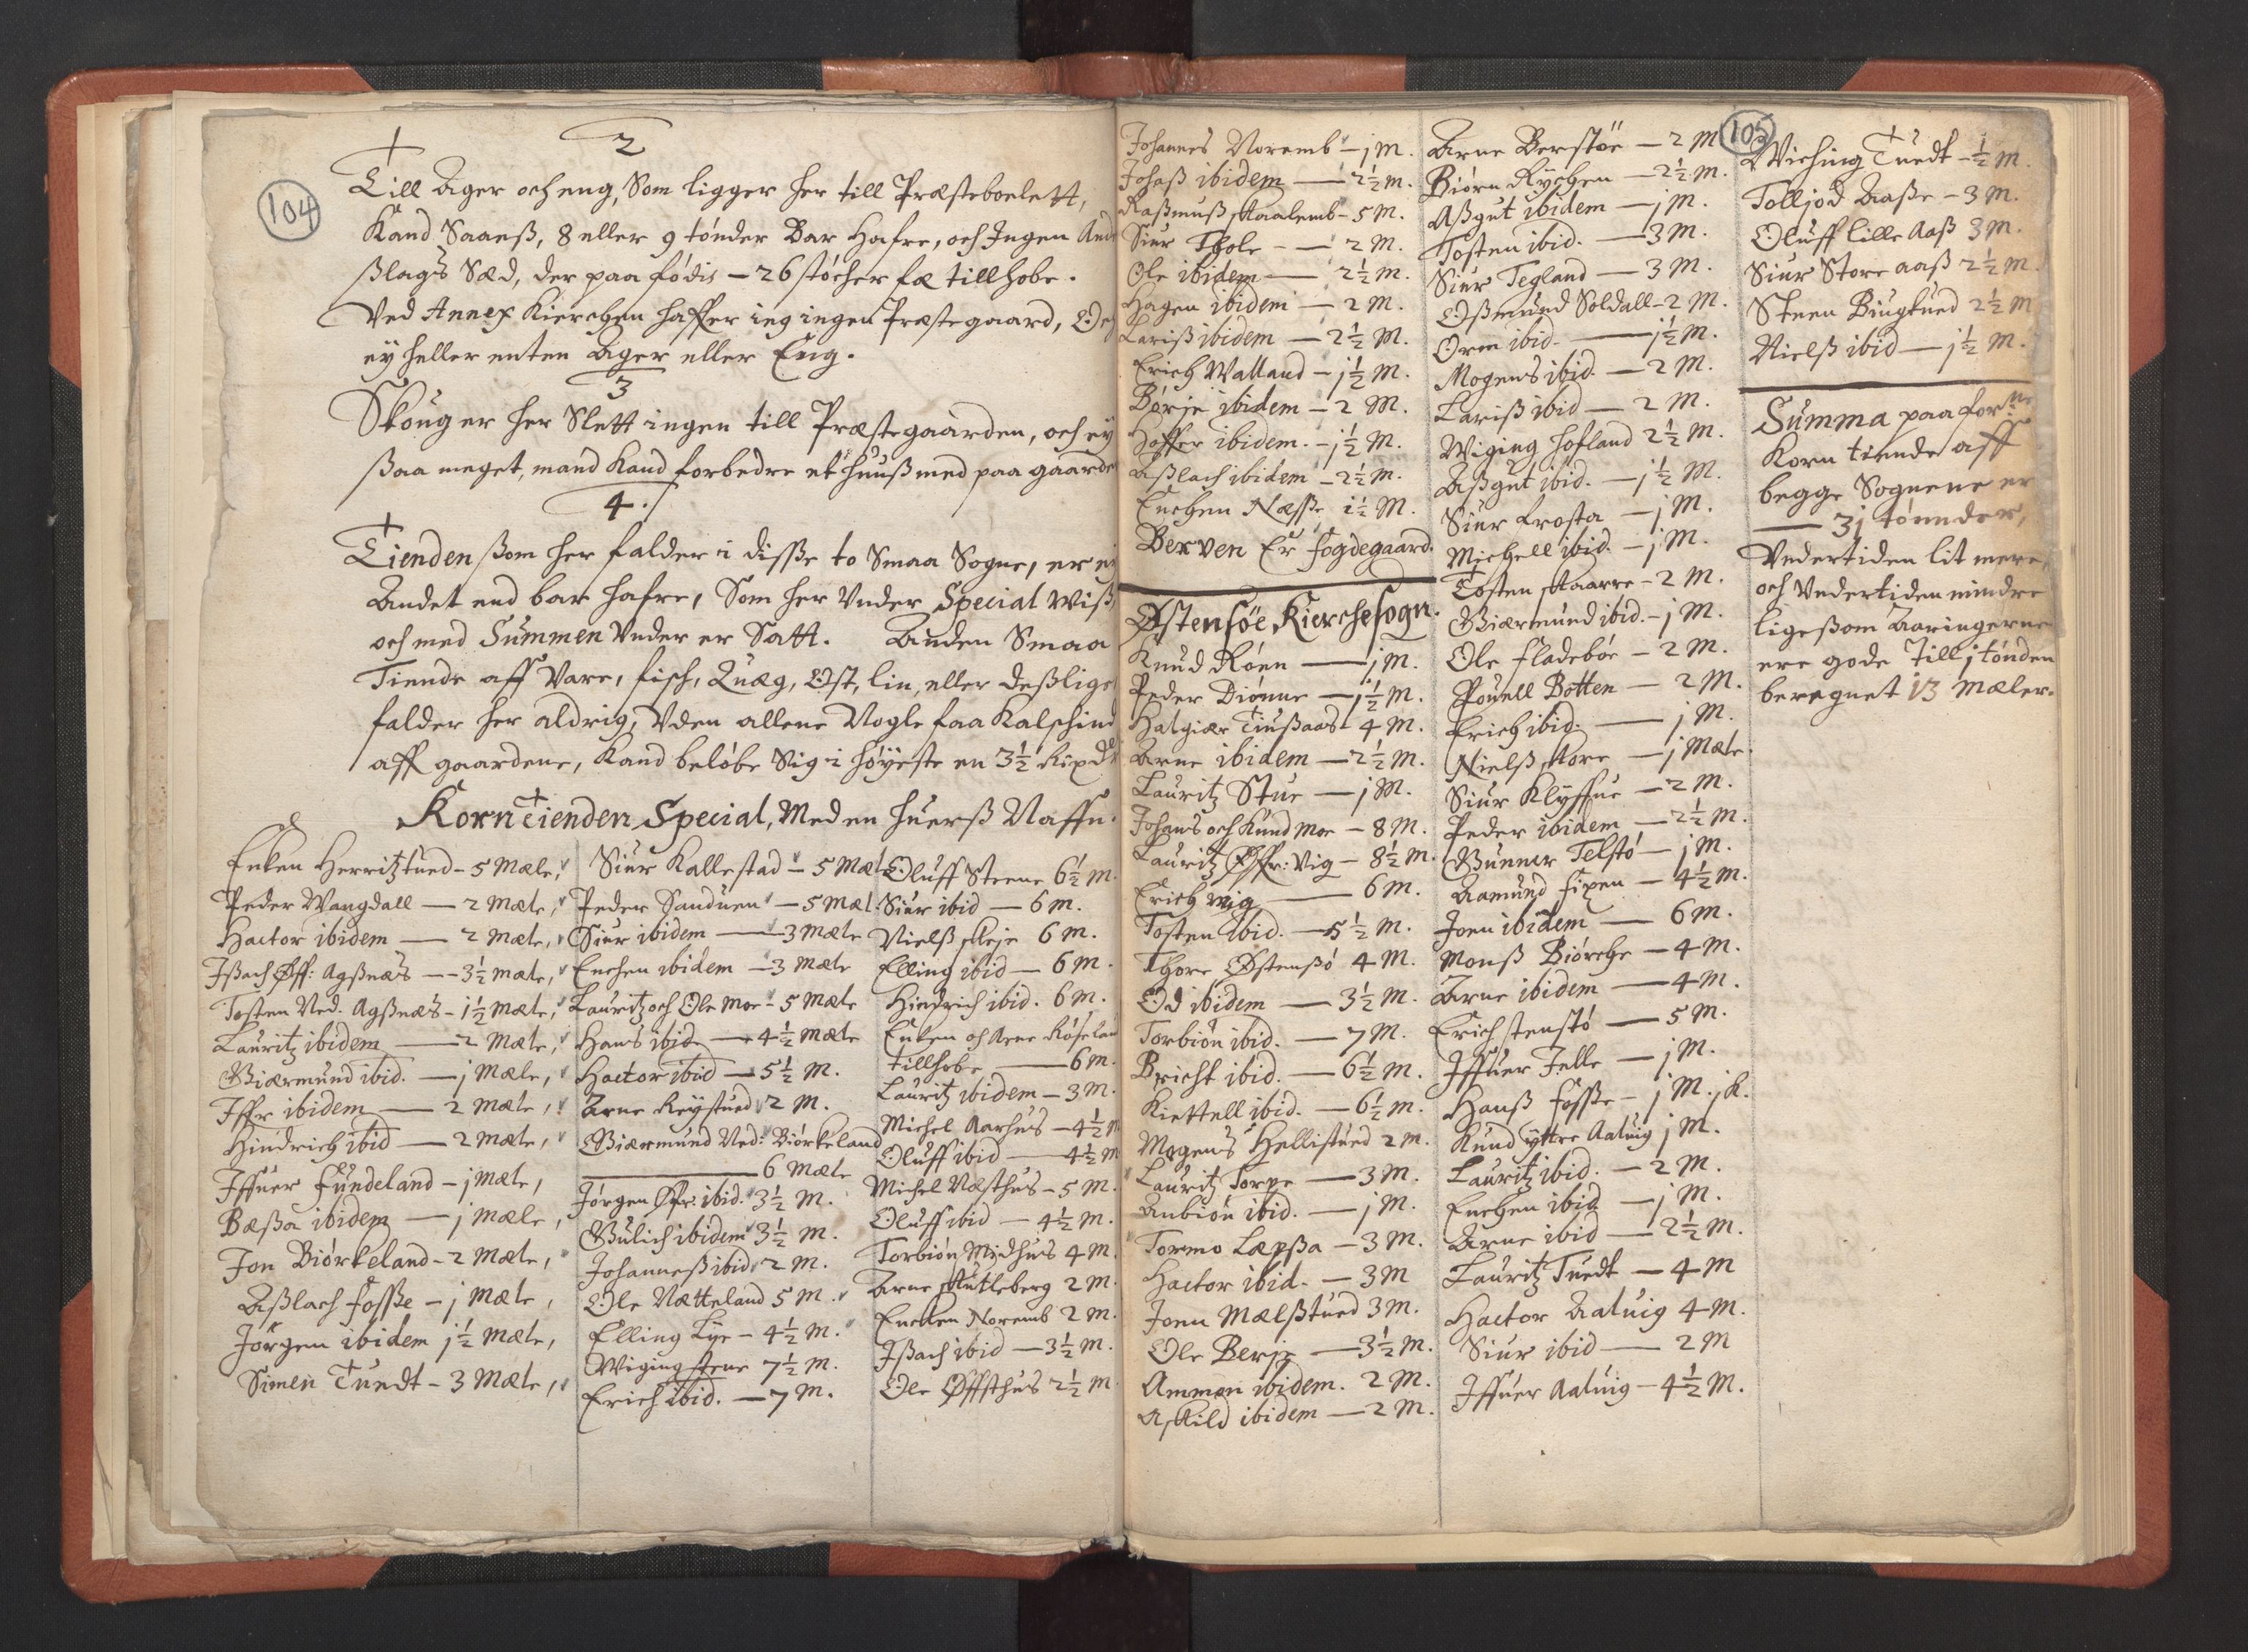 104
2
Till Ager och eng, Som ligger her till Præsteboelett,
Kand Saaeß, 8 eller 9 tónder Bar Hafre, och Ingen And
ßlags Sæd, der paa fódis – 26 stócher fæ tillhobe.
Ved Annex Kierchen haffer ieg ingen Præstegaard, Och
ey heller enten Ager eller Eng.
3
Skoug er her Slett ingen till Præstegaarden, och ey
ßaa meget, mand Kand forbedre et huuß med paa gaarde
4.
Tienden ßom her falder i disse to Smaa Sogne, er ei
Andet end bar hafre, Som her Vnder Special Wiß
och med Summen Vnder er Satt. Anden Smaa
Tiende aff Vare, fisch, Quæg, Ost, lin, eller deßlige
falder her aldrig, Vden allene Nogle faa Kalschind
aff gaardene, Kand belóbe Sig i hóyeste en 3½ Rixd
Korntienden Special, Med en huerß Naffn.
Enken Herritztued – 5 Mæle,
Peder Wangdall — 2 Mæle,
Hactor ibidem — 2 Mæle,
Ißach Øff: Agßnæs — 3½ mæle,
Tosten Ned. Agßnæs – 1½ Mæle,
Lauritz ibidem — 2 Mæle,
Giærmund ibid. — j Mæle,
Iffr ibidem — 2 Mæle,
Hindrich ibid — 2 Mæle,
Iffuer Fundeland – j Mæle,
Bæßa ibidem — j Mæle,
Jon Biórkeland – 2 Mæle,
Aßlach fosse – j Mæle,
Jórgen ibidem j½ Mæle,
Simen Tuedt – 3 Mæle,
Siur Kallestad – 5 Mæl
Peder Sanduen – 5 Mæl.
Siur ibidem — 3 Mæle
Enchen ibidem – 3 Mæle
Lauritz och Ole Moe – 5 Mæle
Hans ibid — 4½ Mæle
Hactor ibid — 5½ M.
Arne Reystued 2 M.
Giærmund Ned: Biórkeland
— 6 Mæle
Jórgen Øfr: ibid. 3½ M.
Gulich ibidem 3½ M.
Johanneß ibid 2 M.
Ole Nætteland 5 M.
Elling Lye – 4½ M.
Wiging stene 7½ M.
Erich ibid. — 7 M.
Oluff Steene 6½ M.
Siur ibid — 6 M.
Nielß skeje 6 M.
Elling ibid — 6 M.
Hindrich ibid. 6 M.
Enken och Arne Róselan
tillhobe — 6 M.
Lauritz ibidem – 3 M.
Michel Aarhus – 4½ M
Oluff ibid — 4½ M
Michel Næsthus – 5 M.
Oluff ibid — 4½ M.
Torbión Midhus 4 M.
Arne skutleberg 2 M.
Encken Noremb 2 M.
Ißach ibid — 3½ M.
Ole Øffsthus 2½ M.
105
Johannes Noremb – j M.
Johaß ibidem — 2½ M.
Raßmuß skaalemb – 5 M.
Siur Thole – — 2 M.
Ole ibidem — 2½ M.
Hagen ibidem — 2 M.
Lariß ibidem — 2½ M.
Erich Walland – j½ M.
Børje ibidem – 2 M.
Hoffer ibidem. – j½ M.
Aßlach ibidem – 2½ M.
Enchen Næsse 1½ M.
Berven Er fogdegaard.
Østensóe Kierchesogn.
Knud Róen — j M.
Peder Diónne — j½ M.
Halgiær Tiußaas – 4 M.
Arne ibidem — 2½ M.
Lauritz Stue — j M.
Johans och Knud Moe – 8 M.
Lauritz Øffr: Vig – 8½ M.
Erich wig — 6 M.
Tosten ibid. — 5½ M.
Thore Østenßó 4 M.
Od ibidem — 3½ M.
Torbión ibid. — 7 M.
Bricht ibid. — 6½ M.
Kiettell ibid. — 6½ M.
Mogens Hellistued 2 M.
Lauritz Torpe — 3 M.
Anbión ibid. — j M.
Tormo Læpßa – 3 M.
Hactor ibid. – 3 M
Joen Mælßtued 3 M.
Ole Berje — 3½ M.
Ammon ibidem. 2 M.
Askild ibidem — 2 M.
Arne Berstóe – 2 M
Biórn Rychen — 2½ M.
Aßgut ibidem — j M.
Tosten ibid. — 3 M.
Siur Tegland — 3 M.
Oßmund Soldall – 2 M.
Orm ibid. — j½ M.
Mogens ibid. — 2 M.
Lariß ibid — 2 M.
Wiging hofland 2½ M.
Aßgut ibid. — j½ M.
Siur Frosta — j M.
Michell ibid. — j M.
Tosten skaarre – 2 M.
Giærmund ibid. – j M.
Ole fladebóe – 2 M.
Pouell Botten — 2 M.
Erich ibid. — j M.
Nielß skore — j Mæle.
Siur Klyffue — 2 M.
Peder ibidem — 2½ M.
Gunner Telstó — j M.
Aamund fixen — 4½ M.
Joen ibidem — 6 M.
Monß Biórche — 4 M.
Arne ibidem — 4 M.
Erich stenstó — 5 M.
Iffuer Jelle — j M.
Hanß Fósse – j M. jK.
Knud yttre Aaluig j M.
Lauritz ibid. – 2 M.
Enchen ibid — j M.
Arne ibid — 2½ M.
Lauritz Tuedt – 4 M
Hactor Aaluig 4 M.
Siur ibid — 2 M
Iffuer Aaluig – 4½ M.
Wiching Tuedt – ½ M.
Tolljod Aaße – 3 M.
Oluff lille Aaß 3 M.
Siur Store aaß 2½ M.
Steen Biugtued 2½ M
Nielß ibid — j½ M.
Summa paa forne
Korn tiende aff
begge Sognene er
— 3j tónnder,
Vndertiden lit mere,
och Vndertiden mindre
ligeßom Aaringerne
ere gode Till j tónden
beregnet 13 Mæler.